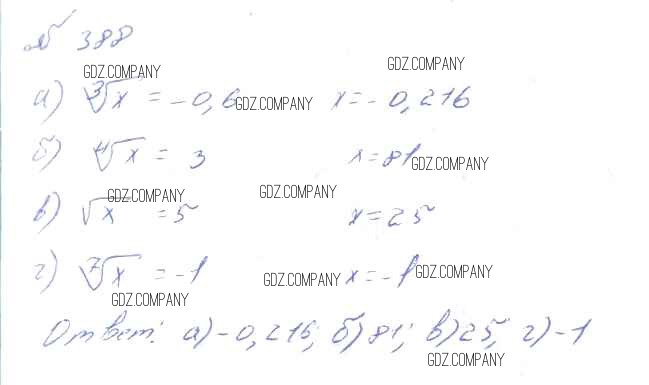 № 388
GDZ.COMPANY GDZ.COMPANY
а) ∛x = -0,6 GDZ.COMPANY x = -0,216
б) ∜x = 3 x = 81 GDZ.COMPANY
GDZ.COMPANY GDZ.COMPANY
в) √x = 5 x = 25
г) ⁷√x = -1 GDZ.COMPANY x = -1 GDZ.COMPANY
GDZ.COMPANY
Ответ: а) -0,216; б) 81; в) 25; г) -1
GDZ.COMPANY